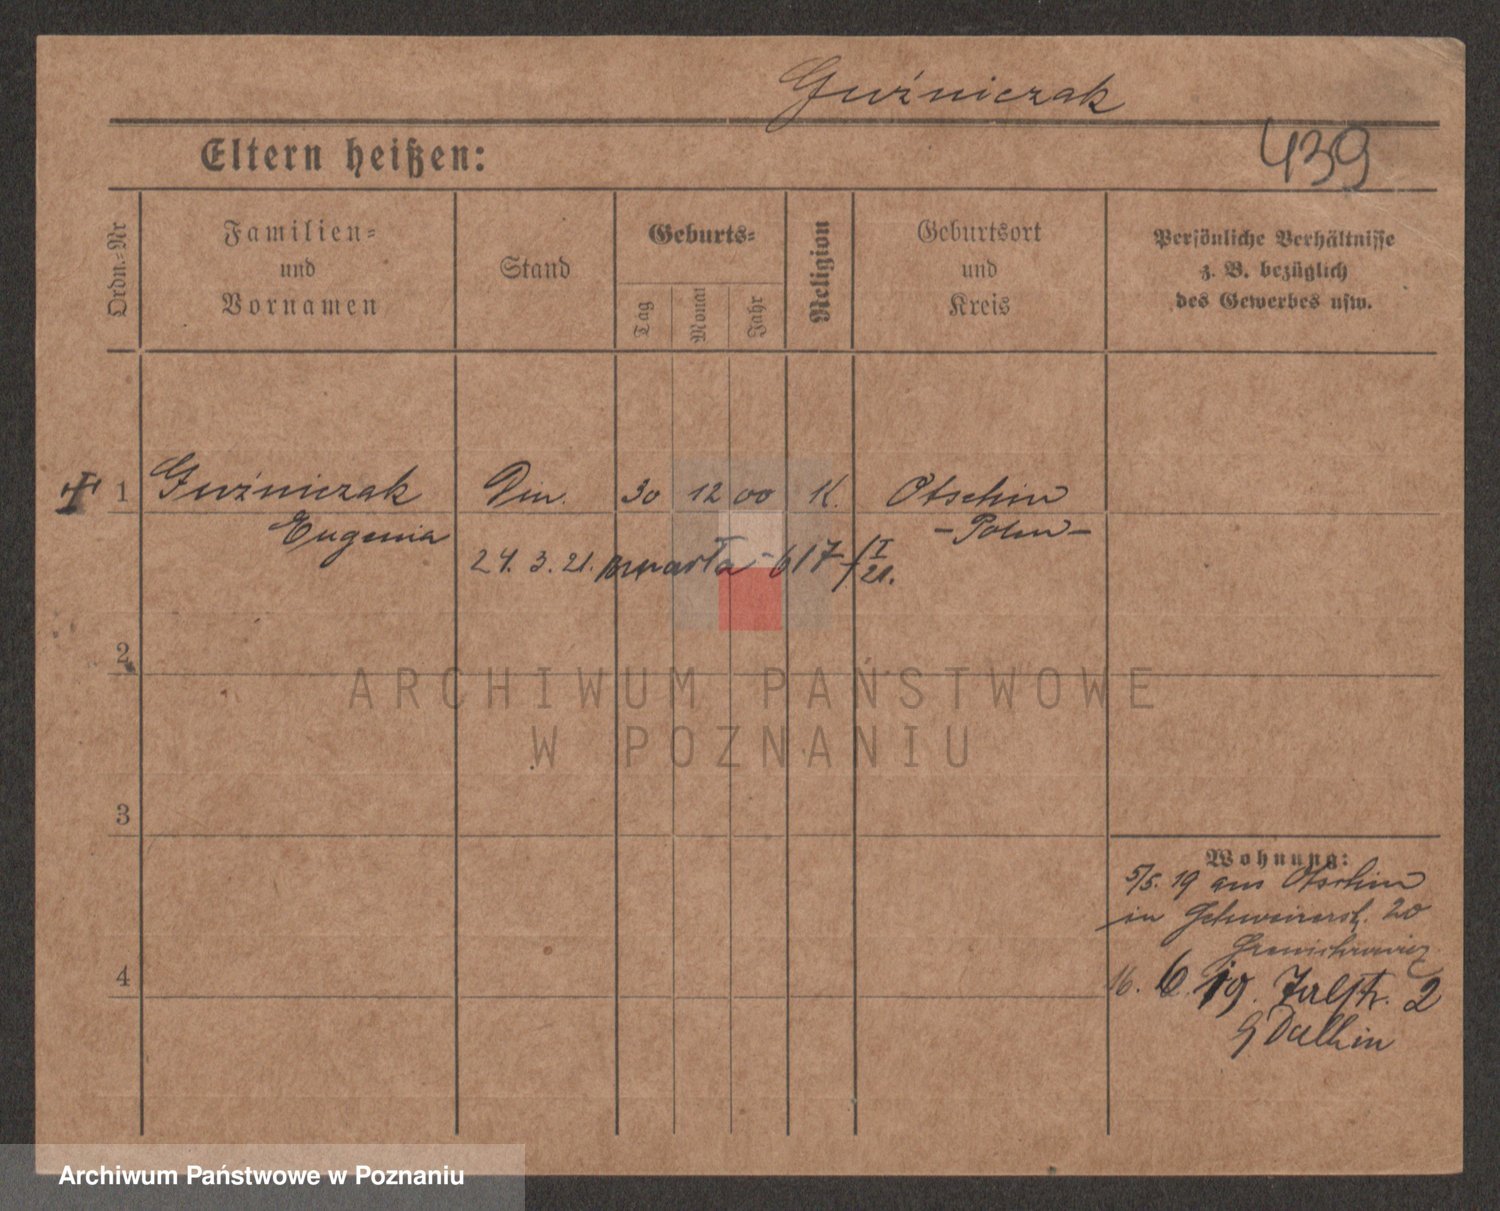 Guźniczak
439
Eltern heißen:
Ordn.-Nr
Familien-
und
Vornamen
Stand
Geburts-
Tag
Monat
Jahr
Religion
Geburtsort
und
Kreis
Persönliche Verhältnisse
z. B. bezüglich
des Gewerbes usw.
1 Guźniczak Din. 30 12 00 K. Otschin
Eugenia - Polen -
24. 3. 21. umarła - 617/I 21.
2
ARCHIWUM PAŃSTWOWE
W POZNANIU
3
Wohnung:
5/5. 19 aus Otschin
in 20
4
16. 6. 19. 2
Archiwum Państwowe w Poznaniu